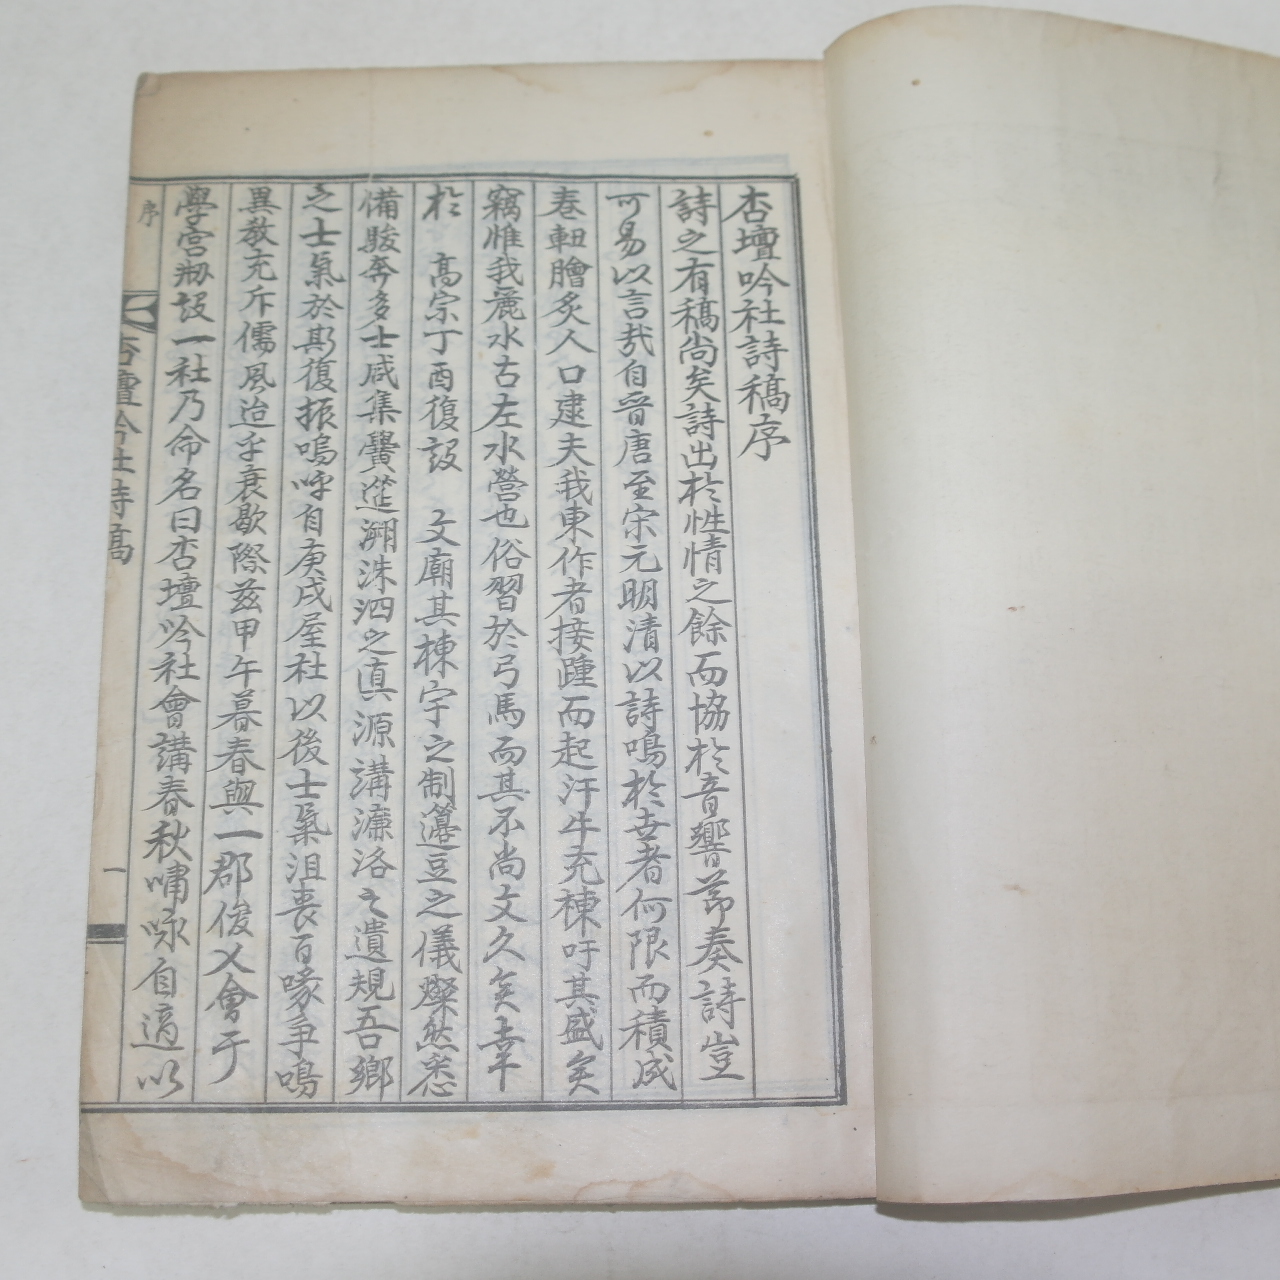 杏壇吟社詩稿序
詩之有稿尚矣詩出於性情之餘而協於音響節奏詩豈
可易以言哉自晋唐至宋元明清以詩鳴於世者何限而積成
巻軸膾炙人口逮夫我東作者接踵而起汗牛充棟吁其盛矣
竊惟我麗水古左水營也俗習於弓馬而其不尚文久矣幸
於 高宗丁酉復設 文廟其棟宇之制籩豆之儀燦然悉
備駿奔多士咸集黌筵溯洙泗之眞源講濂洛之遺規吾鄉
之士氣於斯復振嗚呼自庚戌屋社以後士氣沮喪百喙争鳴
異教充斥儒風迨乎衰歇際茲甲午暮春與一郡俊乂會于
學宮刱設一社乃命名曰杏壇吟社會講春秋嘯咏自適以
序
杏壇吟社詩稿
一